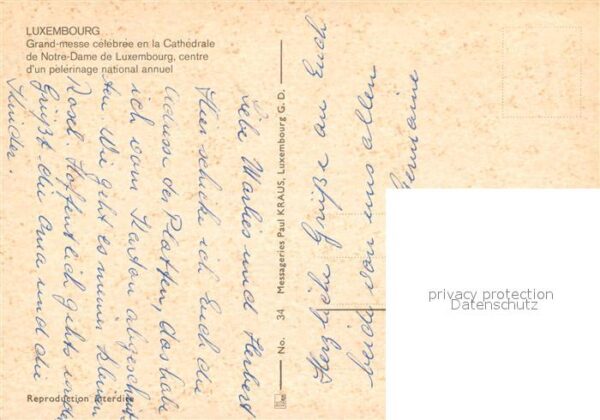 LUXEMBOURG
Grand-messe célébrée en la Cathédrale
de Notre-Dame de Luxembourg, centre
d'un pèlerinage national annuel
Liebe Marlies und Herbert
Hier schicke ich Euch die
Adresse der Platten, das habe
ich vom Karton abgeschnitten
An. Wie geht es meinem kleinen
Hoffentlich gehts
Grüßt die Oma und die
Kinder.
Herzliche Grüße an Euch
beide von uns allen
Germaine
No. 34 Messageries Paul KRAUS, Luxembourg G.D.
Reproduction interdite
privacy protection
Datenschutz